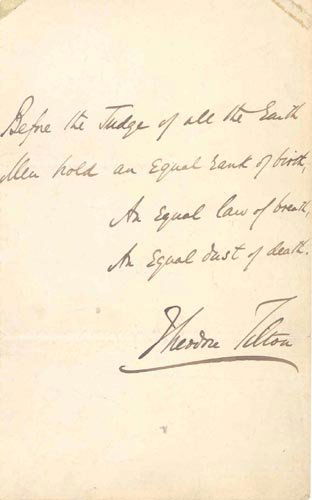 Before the Judge of all the Earth
Men hold an Equal rank of birth,
An Equal law of breath,
An Equal dust of death.
Theodore Tilton